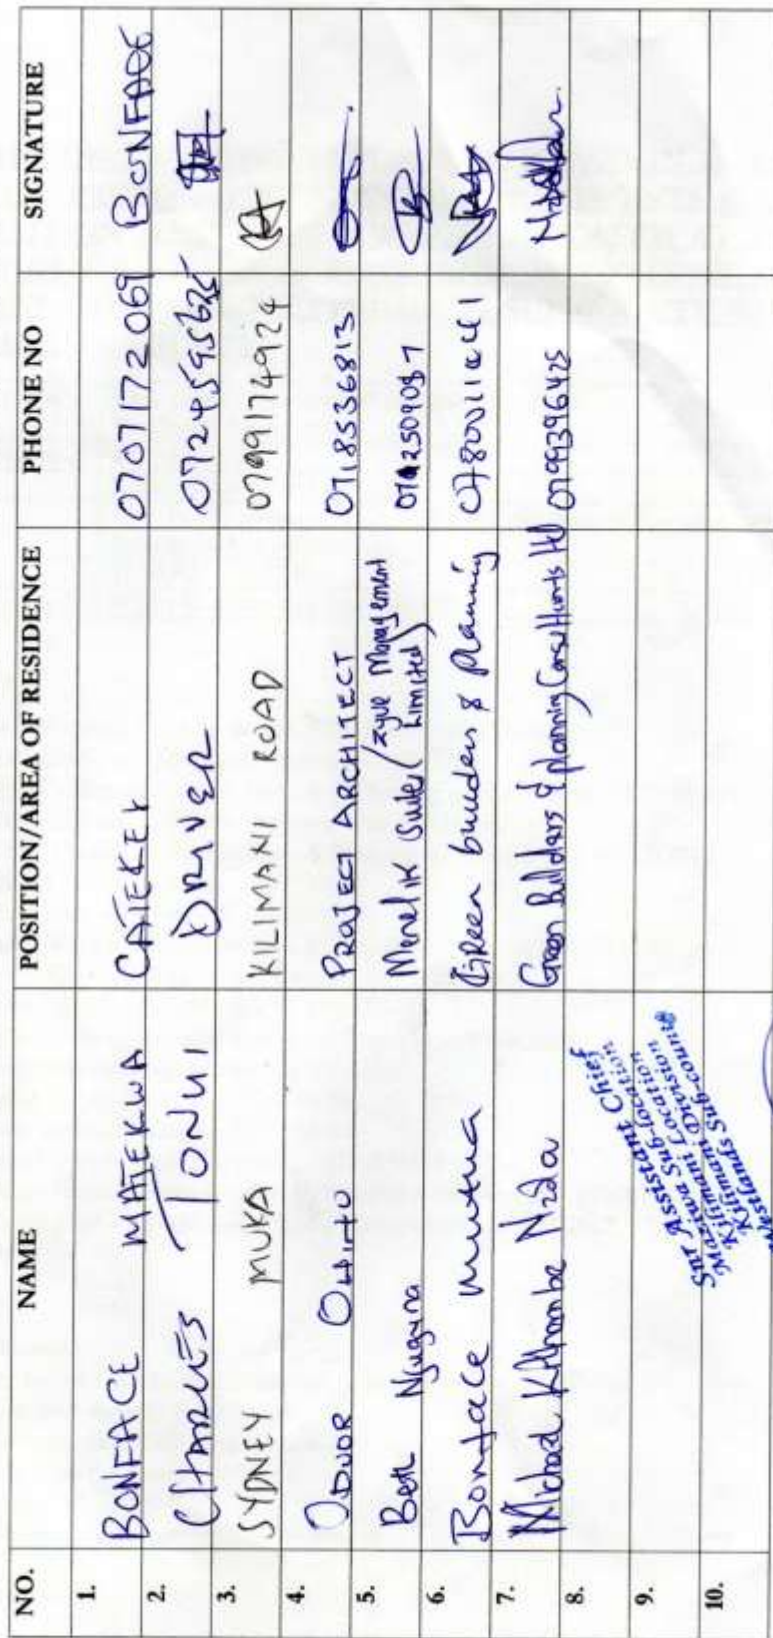 NO. NAME POSITION/AREA OF RESIDENCE PHONE NO SIGNATURE
1. BONFACE MATEKWA CATEKEY 0707172069 BONFACE
2. CHARLES TONUI DRIVER 0724595625
3. SYDNEY MUKA KILIMANI ROAD 0799174924
4. ODUOR OHITO PROJECT ARCHITECT 0718536813
5. Beth Njuguna Menelik Suites (zyue Management
Limited)
6. Boniface Mutua Green builders & Planning
7. Michael Nzda Green Builders & planning Consultants ltd 0799396425
8.
9.
10.
Snr Assistant Chief
Maziwa Sub-location
Kilimani Location
Kilimani Division
Westlands Sub-county